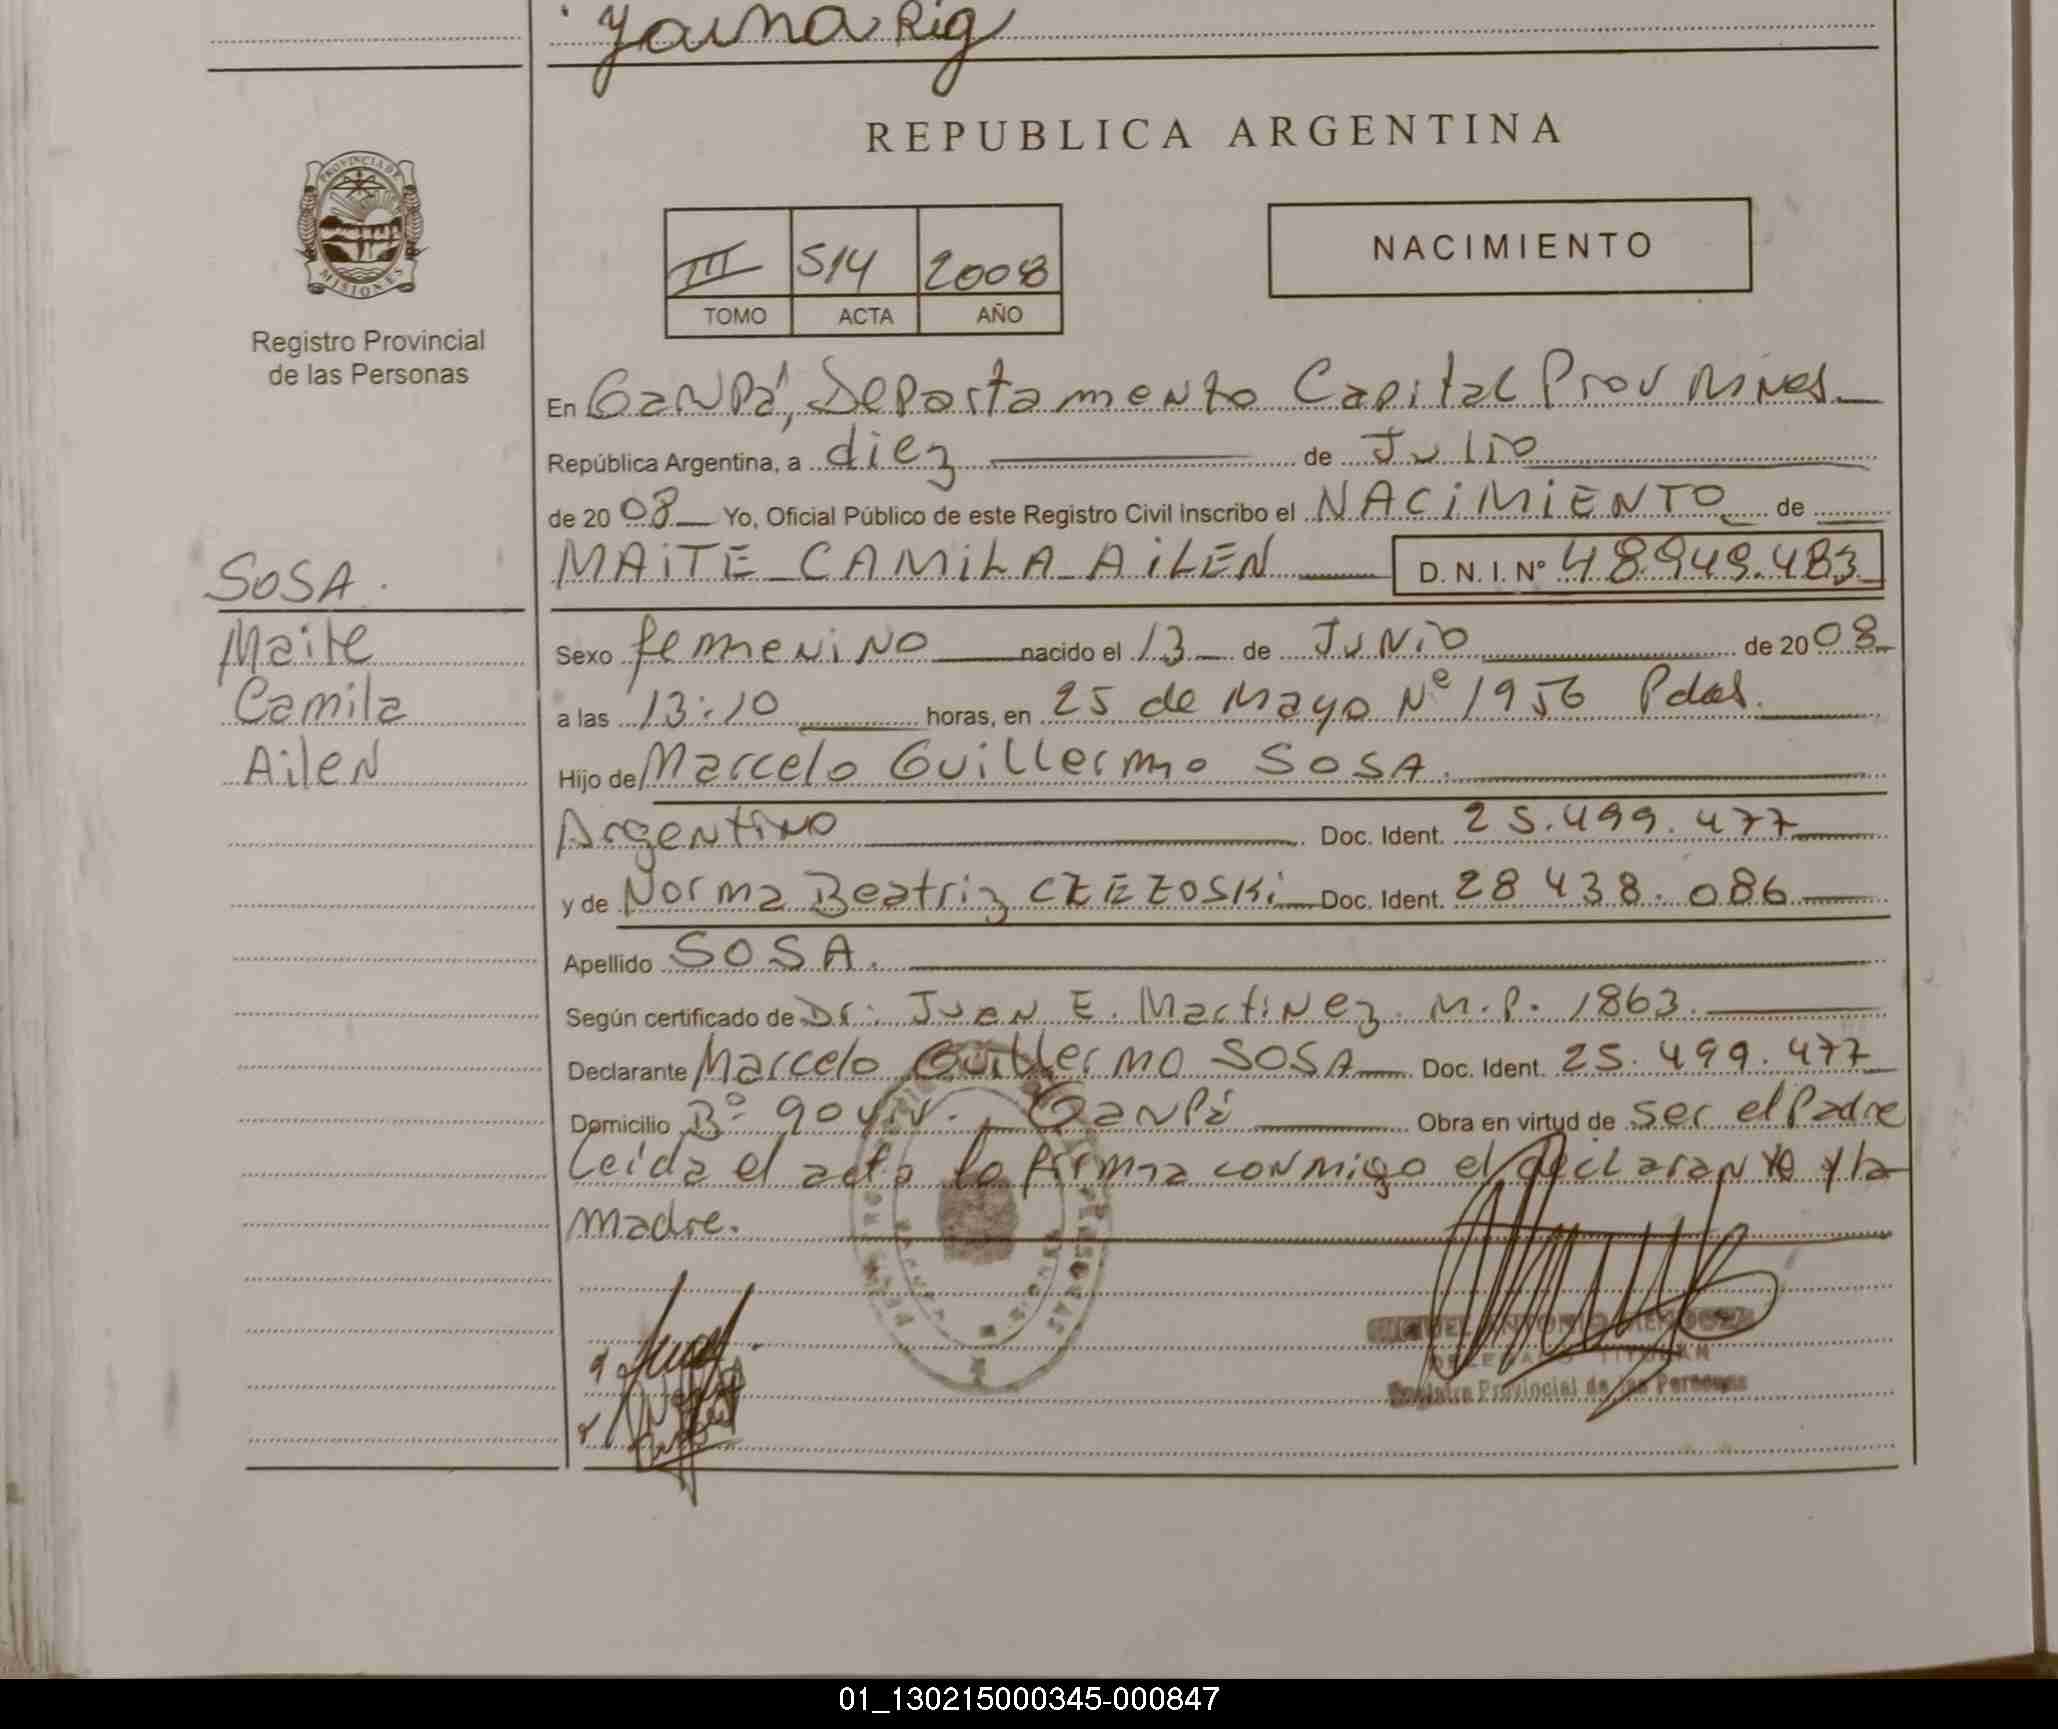 Yaina Rig
REPUBLICA ARGENTINA
PROVINCIA DE
MISIONES
Registro Provincial
de las Personas
III 514 2008
TOMO ACTA AÑO
NACIMIENTO
En Garupá, Departamento Capital Prov Mnes.
República Argentina, a diez de Julio
de 2008 Yo, Oficial Público de este Registro Civil inscribo el NACiMiENTO de
MAiTE CAMiLA AiLEN D. N. I. Nº 48.949.483
SOSA.
Maite
Camila
Ailen
Sexo femenino nacido el 13 de Junio de 2008
a las 13:10 horas, en 25 de Mayo Nº 1956 Pdas.
Hijo de Marcelo Guillermo SOSA.
Argentino Doc. Ident. 25.499.477
y de Norma Beatriz CZEZOSKi Doc. Ident. 28 438.086
Apellido SOSA.
Según certificado de Dr: Juan E. Martinez. M.P. 1863.
Declarante Marcelo Guillermo SOSA Doc. Ident. 25.499.477
Domicilio Bº 90 viv. Garupá Obra en virtud de ser el Padre
Leida el acta la firma conmigo el declarante y la
madre.
MIGUEL ANTONIO
DELEGADO TITULAR
Registro Provincial de las Personas
01_130215000345-000847